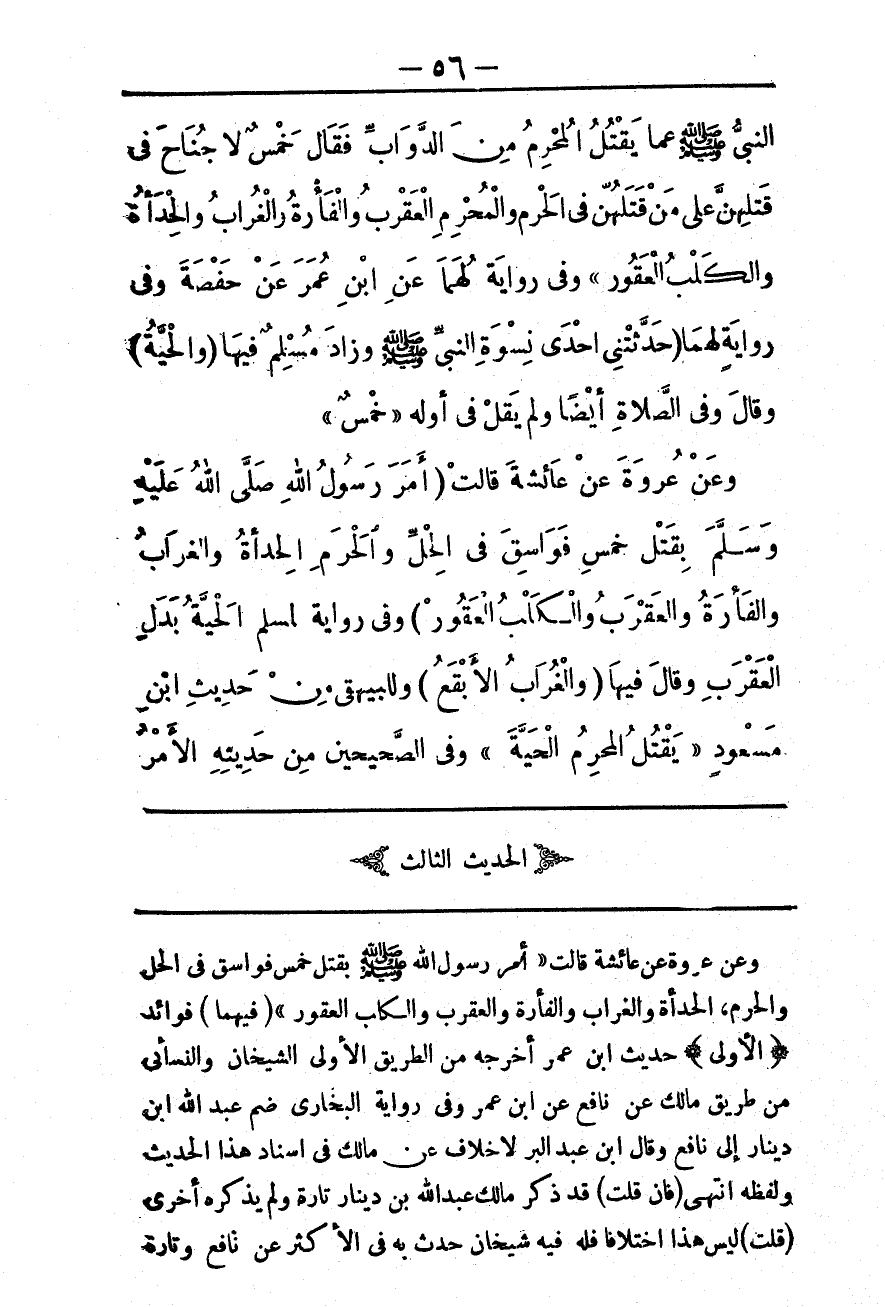 — ٥٦ —
النبىُّ ﷺ عما يَقْتُلُ المُحْرِمُ مِنَ الدَّوَابِّ فَقَالَ خَمْسٌ لا جُنَاحَ فى
قَتلِهِنَّ على مَنْ قَتَلَهُنّ فى الحَرم والْمُحْرِمِ العَقْربُ والْفَأْرةُ والْغُرابُ والحِدَأةُ
والكَلْبُ الْعَقُور » وفى روايَة لهُمَا عَنِ ابْنِ عُمَرَ عَنْ حَفْصَةَ وفى
روايَةٍ لهمَا (حَدَّثَتْنِى احْدَى نِسْوَةِ النبىِّ ﷺ وزادَ مُسْلِمٌ فيهَا (والْحْيَّةُ)
وقالَ وفى الصَّلاةِ أيْضًا ولم يَقلْ فى أوله « خْمسٌ »
وعَنْ عُروَةَ عنْ عَائشةَ قالتْ ( أَمَرَ رَسُولُ اللهِ صَلَّى اللهُ عَلَيْهِ
وَسَلَّمَ بِقَتْل خمسِ فَوَاسِقَ فى الحْلِّ والْحْرَمِ الحِدأةُ والغرَابُ
والفَأرَةُ والعَقْرَبُ والْكَلْبُ العَقُورْ ) وفى رواية لمسلم الَحْيَّةُ بَدَلَ
الْعَقْرَبِ وقالَ فيهَا ( والْغُرَابُ الأَبْقَعُ ) وللبيهقى مِنْ حَديثِ ابْنِ
مَسْعُودٍ « يَقْتُلُ المحرِمُ الْحَيَّةَ » وفى الصَّحيحين مِن حَدِيثِهِ الأَمْرُ
الحديث الثالث
وعن عروة عن عائشة قالت « أمر رسول الله ﷺ بقتل خمس فواسق فى الحل
والحرم، الحدأة والغراب والفأرة والعقرب والكلب العقور » ( فيهما ) فوائد
﴿ الأولى ﴾ حديث ابن عمر أخرجه من الطريق الأولى الشيخان والنسأى
من طريق مالك عن نافع عن ابن عمر وفى رواية البخارى ضم عبد الله ابن
دينار إلى نافع وقال ابن عبد البر لاخلاف عن مالك فى اسناد هذا الحديث
ولفظه انتهى (فان قلت) قد ذكر مالك عبدالله بن دينار تارة ولم يذكره أخرى
(قلت) ليس هذا اختلافا فله فيه شيخان حدث به فى الأكثر عن نافع وتارة